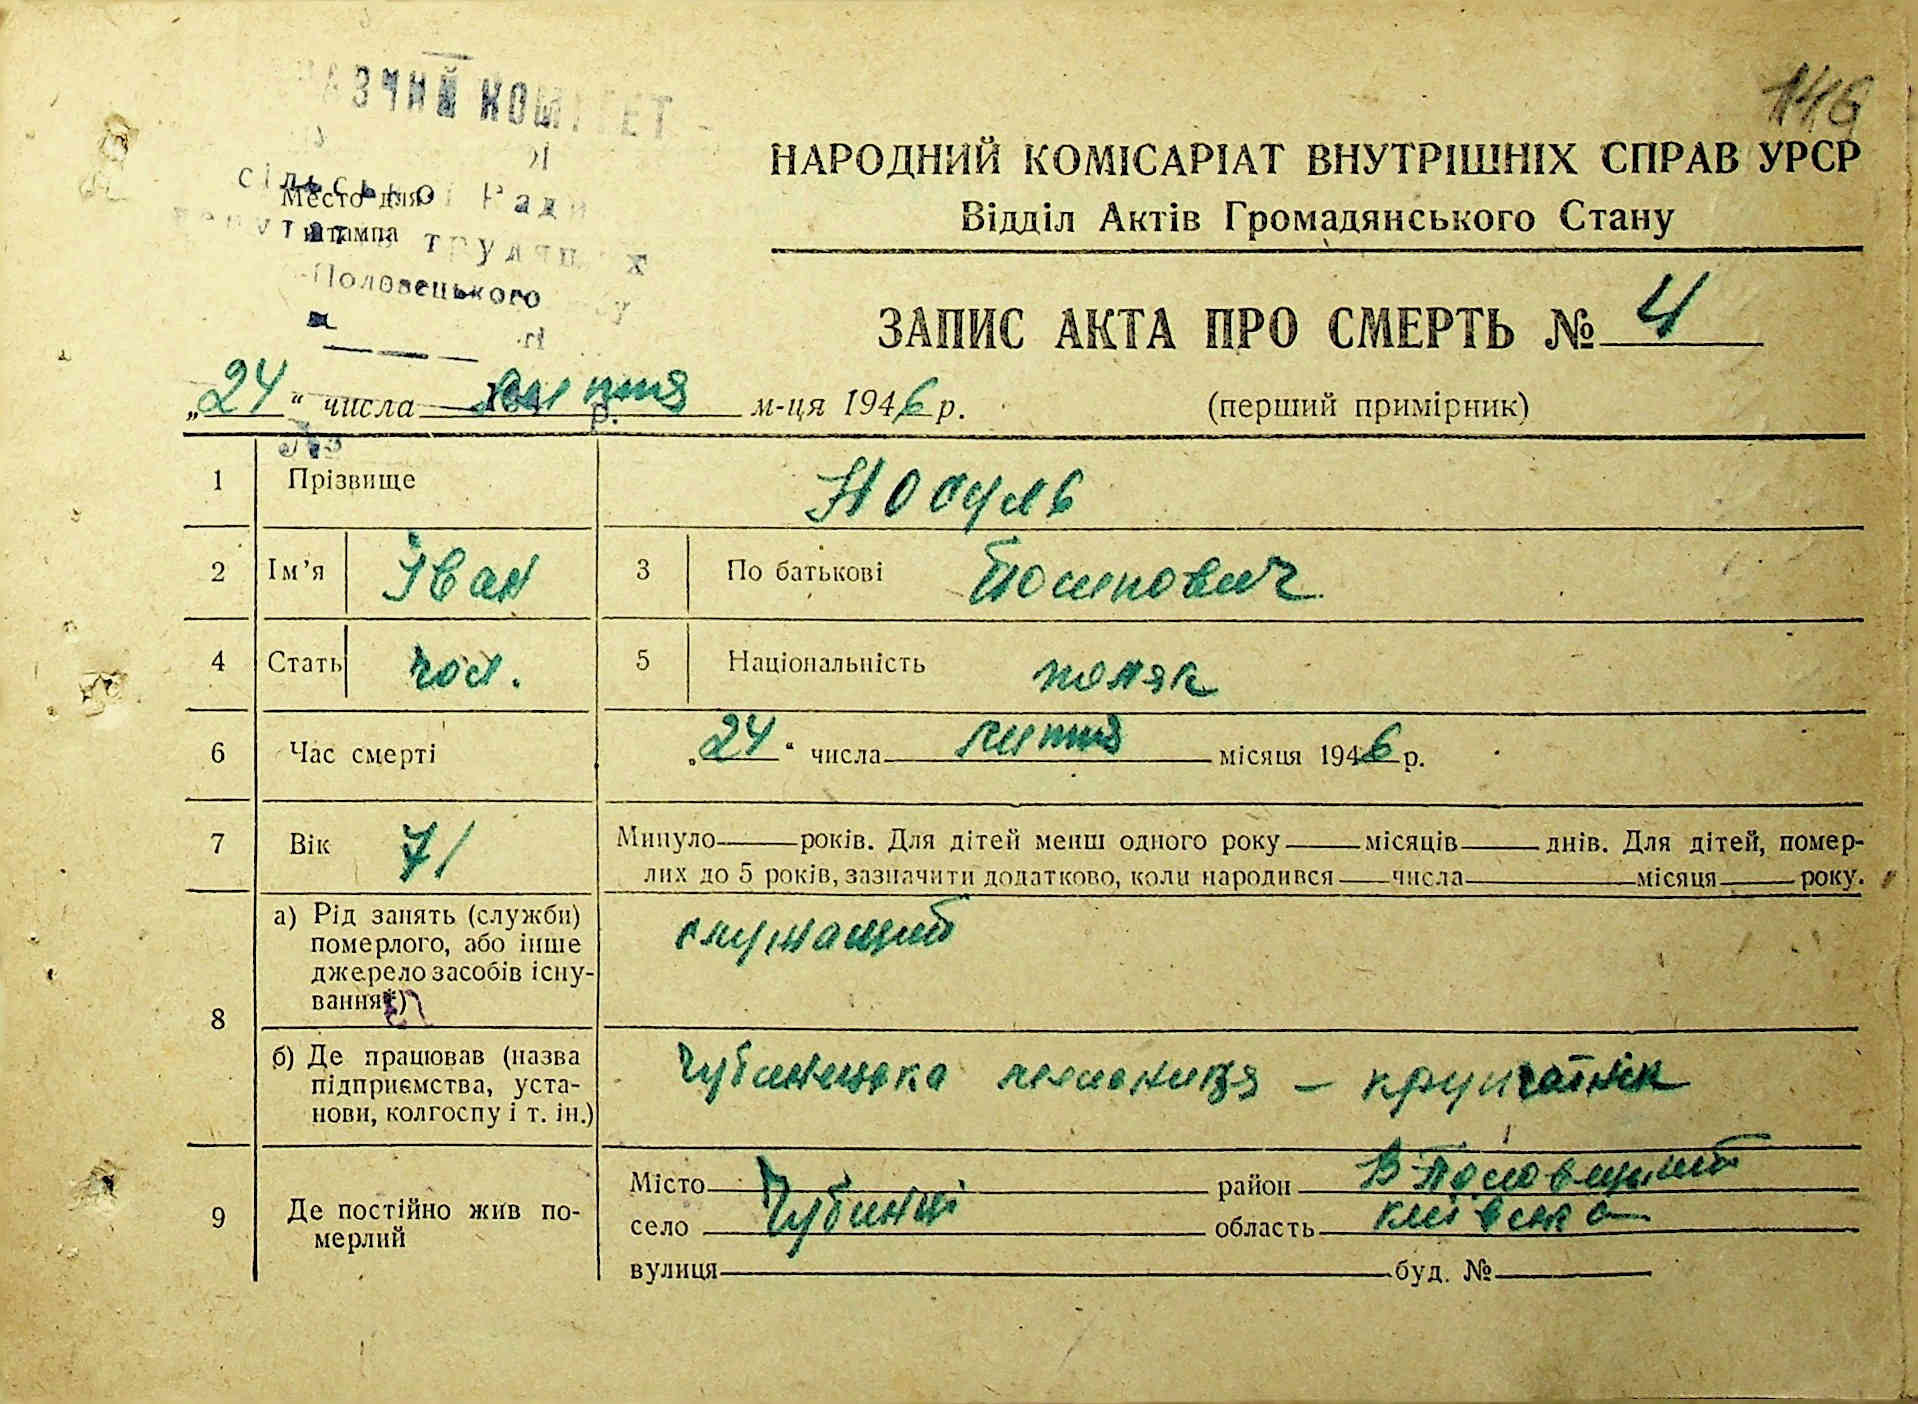 146
КОМІТЕТ
сільської Ради
трудящих
Половецького
Место для
штампа
НАРОДНИЙ КОМІСАРІАТ ВНУТРІШНІХ СПРАВ УРСР
Відділ Актів Громадянського Стану
ЗАПИС АКТА ПРО СМЕРТЬ № 4
„24“ числа лютня м-ця 1946 р.
(перший примірник)
1 Прізвище Носуль
2 Ім’я Іван 3 По батькові Йосипович
4 Стать чол. 5 Національність поляк
6 Час смерті „24“ числа лютня місяця 1946 р.
7 Вік 71 Минуло—років. Для дітей менш одного року—місяців—днів. Для дітей, помер-
лих до 5 років, зазначити додатково, коли народився—числа—місяця—року.
8 а) Рід занять (служби)
померлого, або інше
джерело засобів існу-
вання*)
служащий
б) Де працював (назва
підприємства, уста-
нови, колгоспу і т. ін.)
Чубинецька — крупчатнік
9 Де постійно жив по-
мерлий
Місто район В-Половецький
село Чубинці область київська
вулиця буд. №